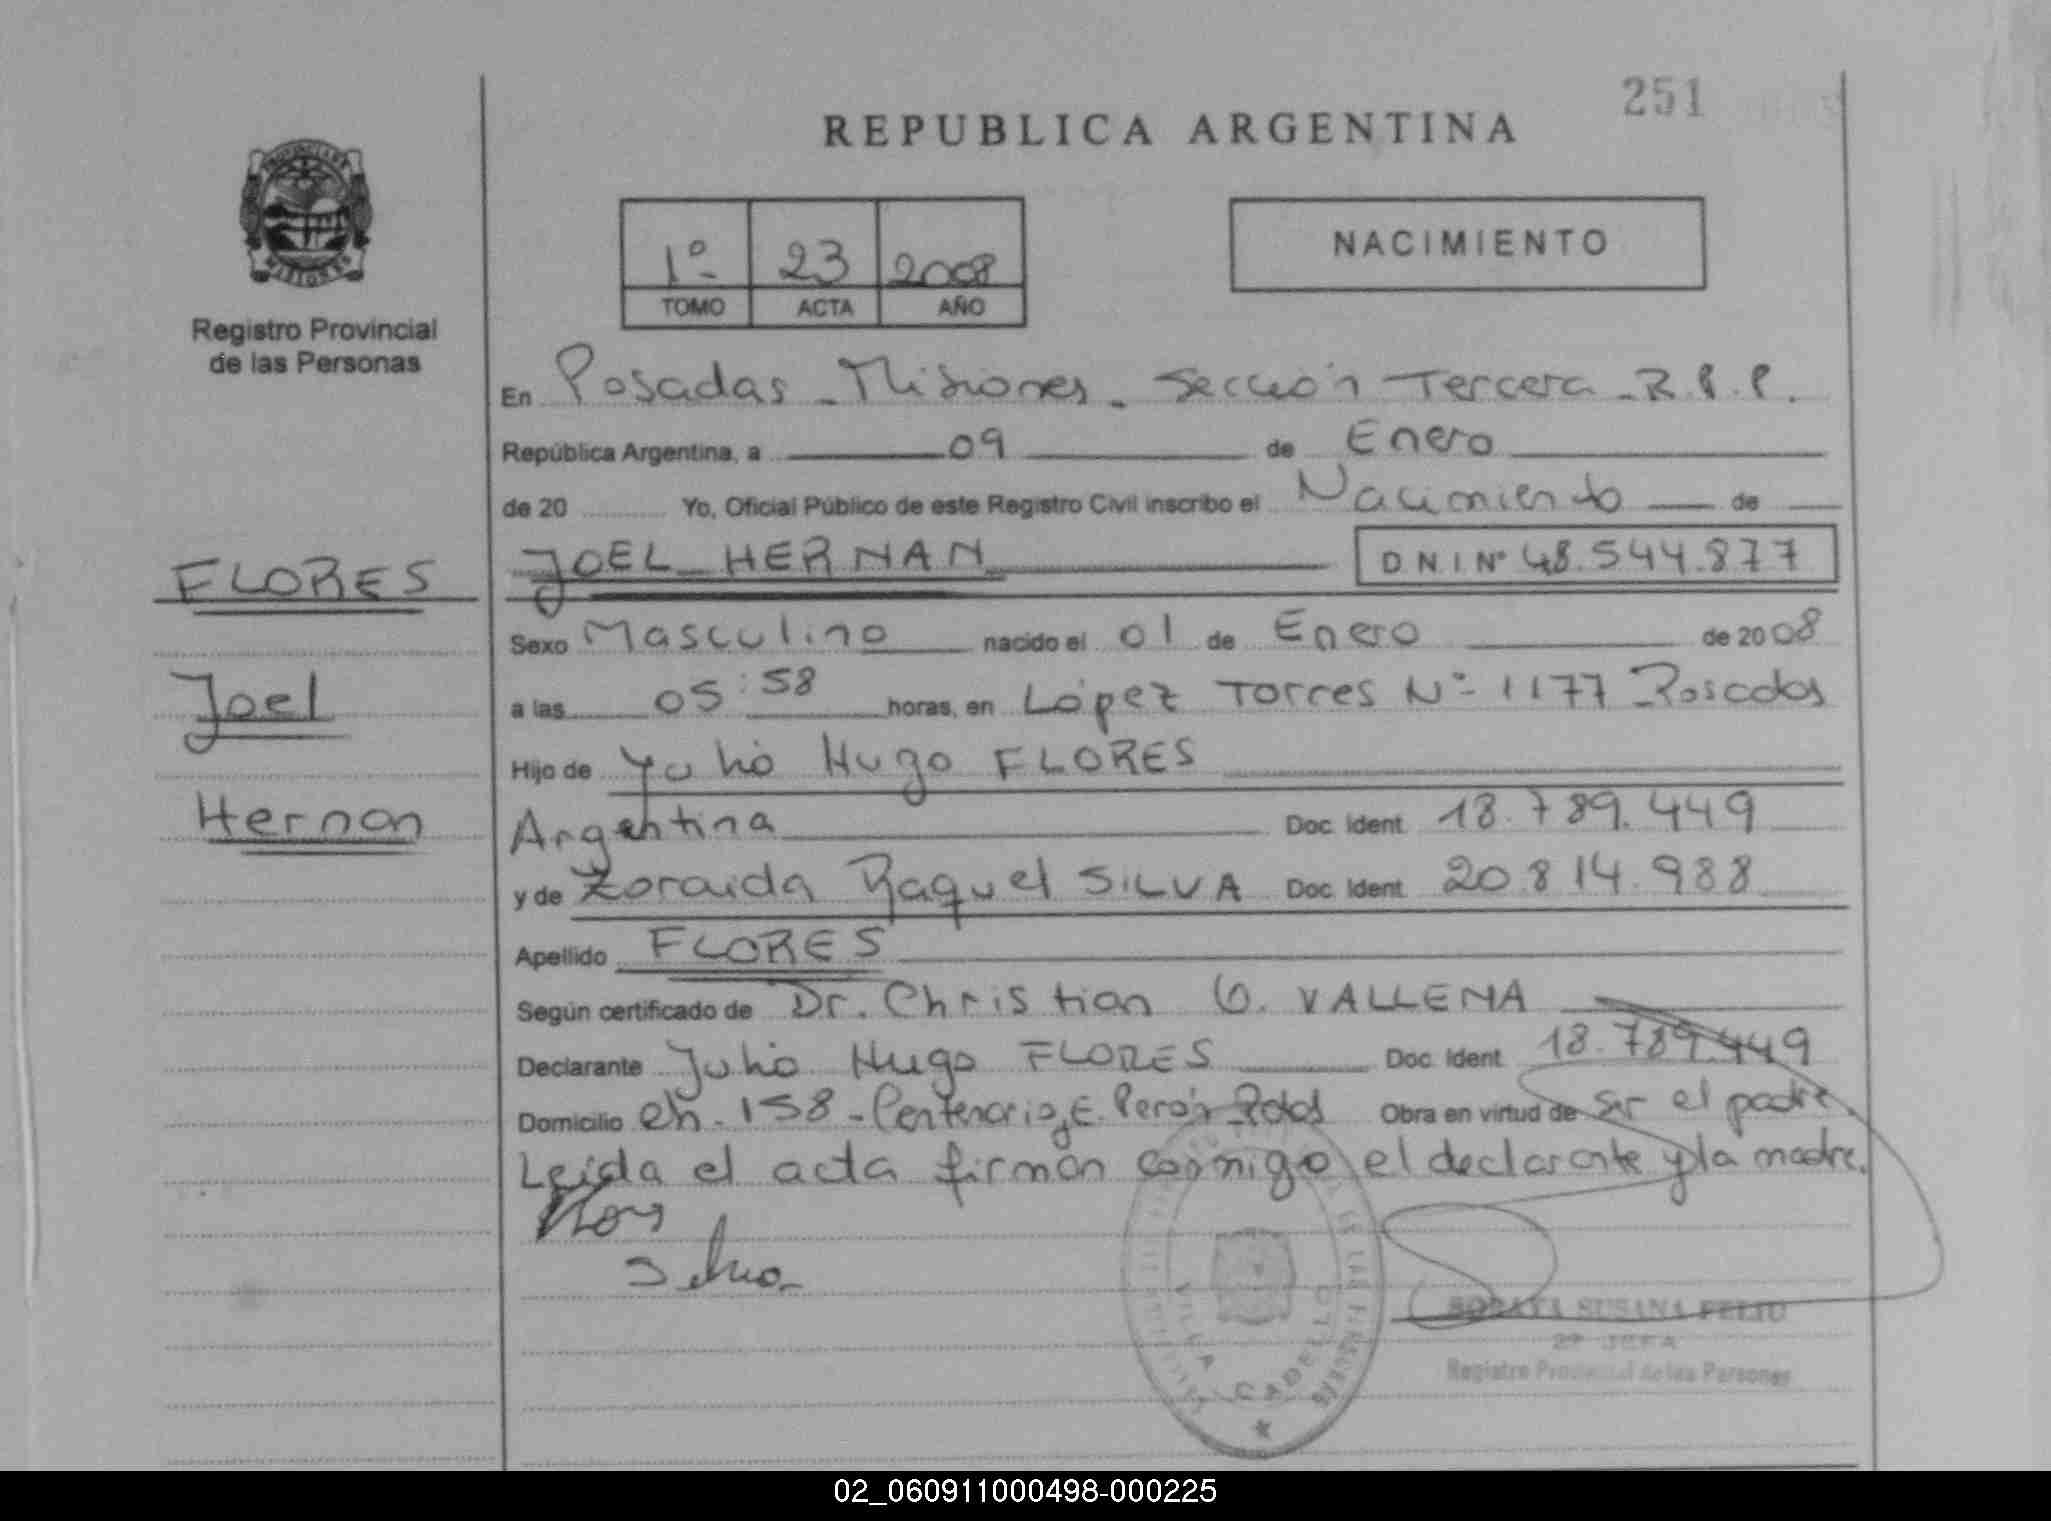 251
REPUBLICA ARGENTINA
PROVINCIA DE MISIONES
Registro Provincial
de las Personas
1º 23 2008
TOMO ACTA AÑO
NACIMIENTO
En Posadas - Misiones - Sección Tercera - R.P.P.
República Argentina, a 09 de Enero
de 20 Yo, Oficial Público de este Registro Civil inscribo el Nacimiento de
FLORES
Joel
Hernan
JOEL HERNAN DNI Nº 48.544.877
Sexo Masculino nacido el 01 de Enero de 2008
a las 05:58 horas, en López Torres Nº 1177 Posadas
Hijo de Julio Hugo FLORES
Argentina Doc. Ident. 18.789.449
y de Zoraida Raquel SILVA Doc. Ident. 20.814.988
Apellido FLORES
Según certificado de Dr. Christian G. VALLENA
Declarante Julio Hugo FLORES Doc. Ident. 18.789.449
Domicilio Ch. 158 - Centenario y E. Perón - Pdas Obra en virtud de ser el padre
Leída el acta firman conmigo el declarante y la madre.
Silva
VILLA CABELLO
SORAYA SUSANA FELIU
2ª JEFA
Registro Provincial de las Personas
02_060911000498-000225